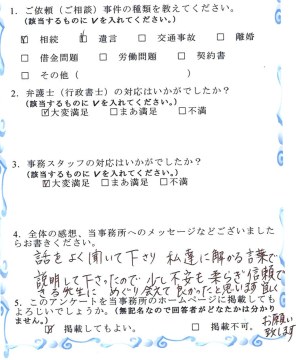 1. ご依頼（ご相談）事件の種類を教えてください。
（該当するものに✓を入れてください。）
☑相続 ☑遺言 □交通事故 □離婚
□借金問題 □労働問題 □契約書
□その他（　　　　　　　　）
2. 弁護士（行政書士）の対応はいかがでしたか？
（該当するものに✓を入れてください。）
☑大変満足 □まあ満足 □不満
3. 事務スタッフの対応はいかがでしたか？
（該当するものに✓を入れてください。）
☑大変満足 □まあ満足 □不満
4. 全体の感想、当事務所へのメッセージなどございましたらお書きください。
話をよく聞いて下さり 私達に解かる言葉で
説明して下さったので 少し不安も柔らぎ 信頼で
きる先生に めぐり会えて良かったと思います 宜しく
お願い
致します
5. このアンケートを当事務所のホームページに掲載しても
よろしいでしょうか。（無記名なので回答者がどなたかは分かり
ません。）
☑掲載してもよい。 □掲載不可。